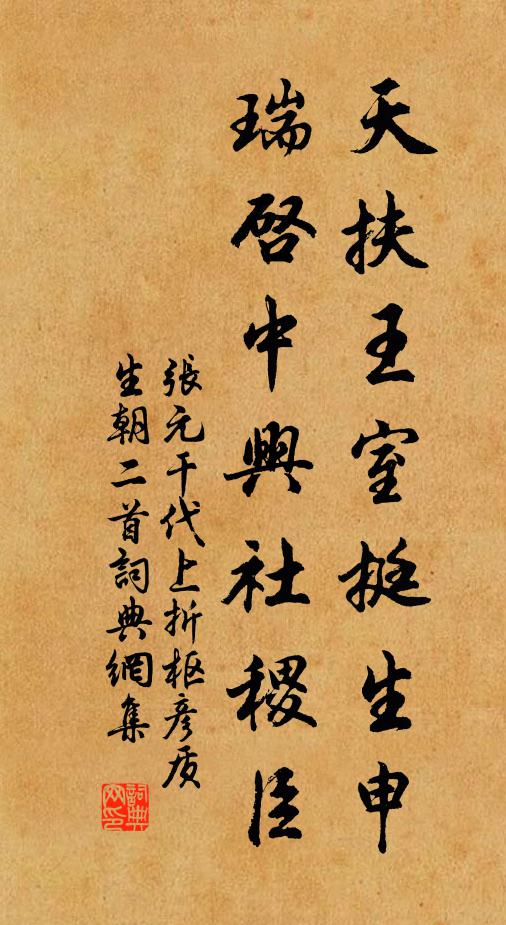 天扶王室挺生申
瑞啓中興社稷臣
張元干代上折枢彥质
生朝二首詞典網集
詞典網印